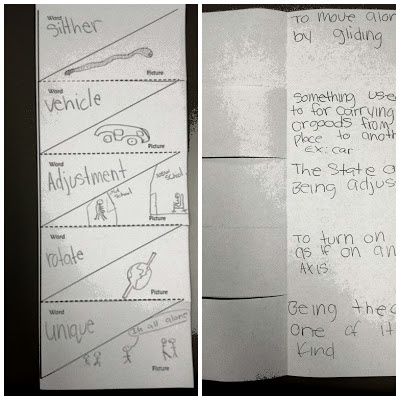 Word
slither
Picture
Word
vehicle
Picture
Word
Adjustment
old
School
New
School
Picture
Word
rotate
Picture
Word
unique
Im all alone
Picture
To move alon
by gliding
something use
to for carrying
or goods from
place to anoth
EX: car
The State o
Being adjus
To turn on
as if on an
AXIS
Being the o
one of it
Kind